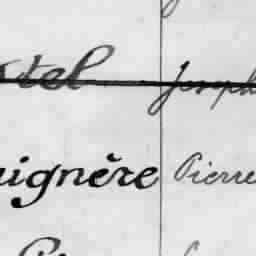 stel Joseph
uignère Pierre